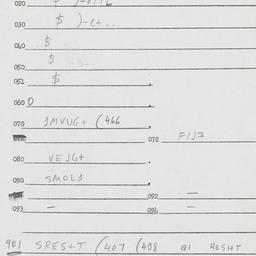 020 $
030 $ )-c+...
040 $
050 $
051 $
060 0
070 1MVUG+ (466
072
080 VEJG+
090 SMOL1
092 —
093 —
901 SRES+T (407 (408 Q1 RESHT